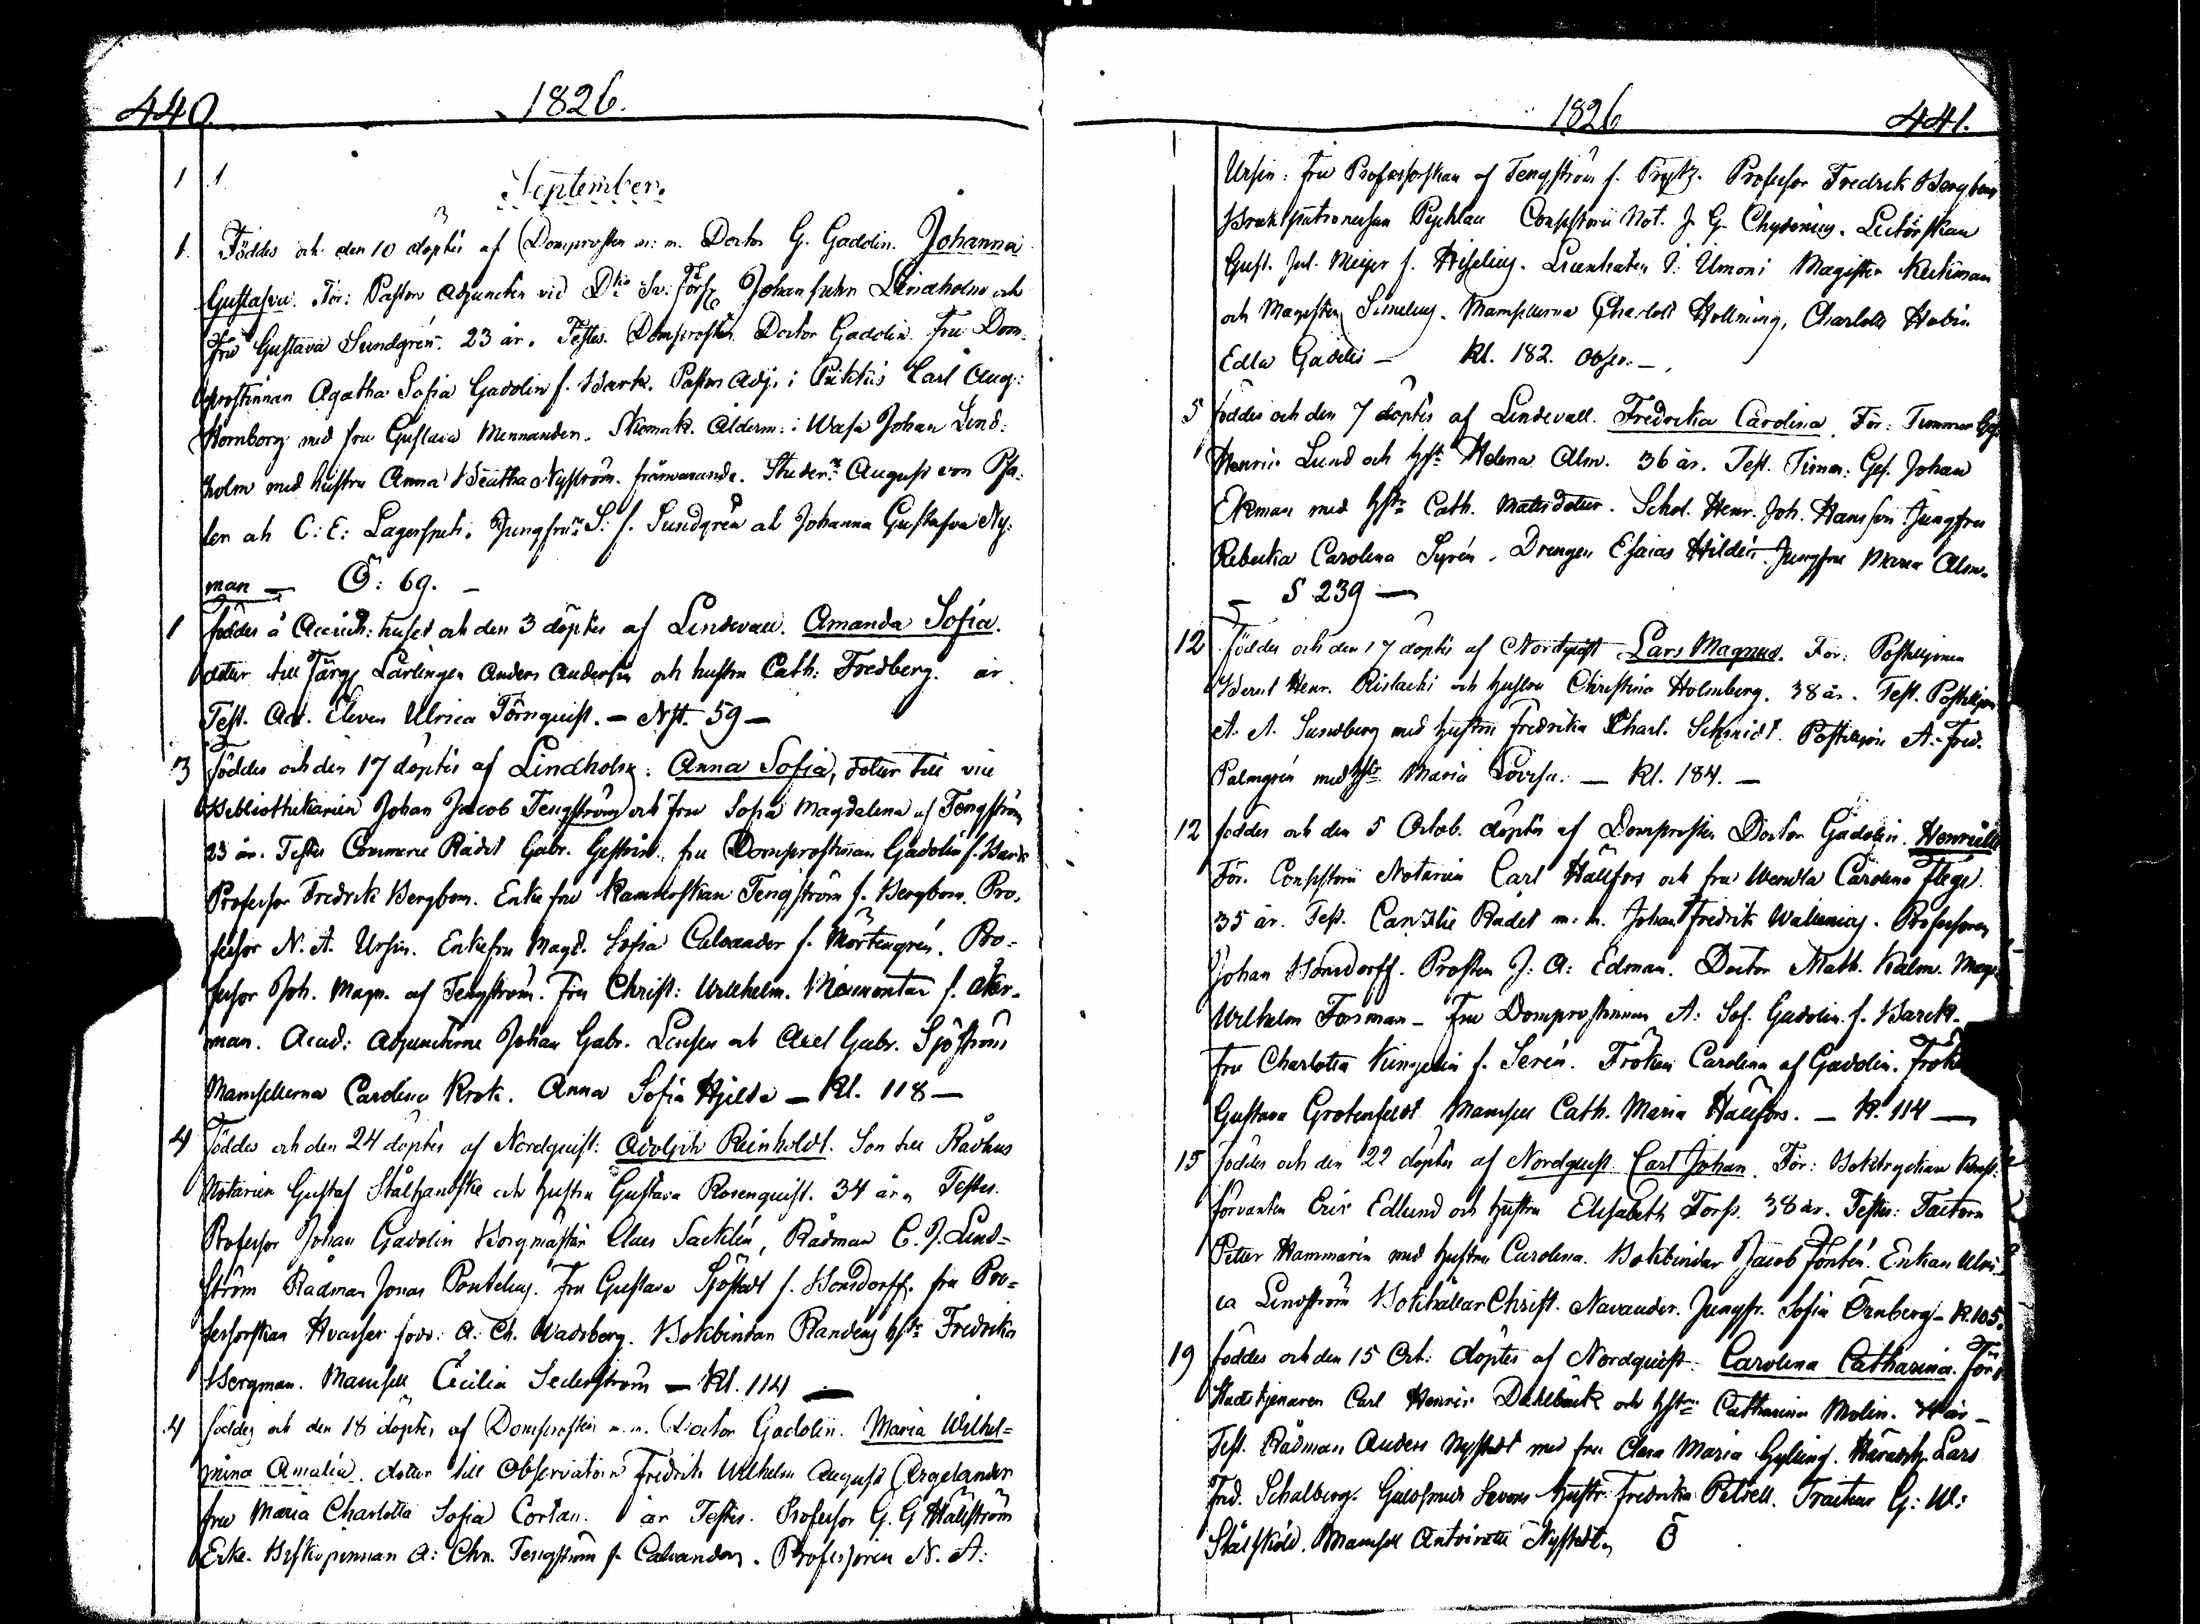 440.
1826.
1 1
September.
1. Föddes och den 10 döptes af Domprosten m: m. Doctor G. Gadolin. Johanna
Gustafva. För: Pastors Adjuncten vid Dho Sv: Förs: Johan Lindholm och
Fru Gustava Sundgrén. 23 år. Testes. Domprosten Doctor Gadolin. Fru Dom-
prostinnan Agatha Sofia Gadolin f. Barck. Pastors Adj. i Pikkis Carl Aug:
Hornborg med fru Gustava Mennander. Skomak. Ålderm: i Wasa Johan Lind:
holm med hustru Anna Beatha Nyström. frånvarande. Studer: August von Pfa-
ler och C: E: Lagerspetz. Jungfru: S: f. Sundgrén och Johanna Gustafva Ny-
man — Ö: 69. —
1 föddes å Accouch: huset och den 3 döptes af Lindevall. Amanda Sofia.
dotter till Färg: Lärlingen Anders Andersin och hustru Cath: Fredberg. år.
Test. Acc. Eleven Ulrica Törnquist. — Nst. 59 —
3 Föddes och den 17 döptes af Lindholm. Anna Sofia, dotter till vice
Bibliothekarien Johan Jacob Tengström och fru Sofia Magdalena af Tengström
23 år. Testes Commerce Rådet Gabr. fru Domprostinnan Gadolin f. Barck
Professor Fredrik Bergbom. Enke fru Kamrerskan Tengström f. Bergbom. Pro-
fessor N. A. Ursin. Enkefru Magd. Sofia Caloander f. Mörtengrén. Pro-
fessor Joh. Magn. af Tengström. Fru Christ: Wilhelm. f. Åker-
man. Acad: Adjuncterne Johan Gabr. och Axel Gabr. Sjöström
Mamsellerna Carolina Krok. Anna Sofia Hjelt — Kl. 118 —
4 Föddes och den 24 döptes af Nordquist. Adolph Reinholdt. Son till Rådhus
Notarien Gustaf Stålhandske och hustru Gustava Rosenquist. 34 år. Testes.
Professor Johan Gadolin Borgmästar Claes Sacklén, Rådman C. J. Lind-
ström Rådman Jonas Pontelius. Fru Gustava Sjöstedt f. Bonsdorff. fru Pro-
fessorskan Hvasser född: A. Ch. Wadsberg. Bokbindar hstr Fredrika
Bergman. Mamsell Cecilia Sederström — Kl. 114 —
4 föddes och den 18 döptes af Domprosten m. m. Doctor Gadolin. Maria Wilhel-
mina Amalia. dotter till Observatorn Fredrik Wilhelm August Argelander
fru Maria Charlotta Sofia Cortan. år Testes. Professor G. G Hällström
Enke. Biskopinnan A: Chr. Tengström f. Caloander. Professoren N. A:
1826
441.
Ursin: fru Professorskan af Tengström f. Prytz. Professor Fredrik Bergbom
Conststorii Not. J G Chydenius. Lectorskan
Gust. Jul. Meijer f. Hiselius. Magister Keckman
och Magister Simelius. Mamsellerna Charlott Hollming, Charlotte
Edla Gadolin — Kl. 182. Obser. —
5 föddes och den 7 döptes af Lindevall. Fredrika Carolina. För: Timmer Ges
Henric Lund och hstr Helena Alm. 36 år. Test. Timm: Ges. Johan
Ekman med hstr Cath. Matsdotter. Schol. Henr. Joh. Hansson Jungfru
Rebecka Carolina Syrén. Drengen Esaias Hildén. Jungfru Maria Alm.
— S 239 —
12 Föddes och den 17 döptes af Nordquist Lars Magnus. För: Postiljonen
Berndt Henr. Rislachi och hustru Christina Holmberg. 38 år. Test. Postiljon
A. A. Sundberg med hustru Fredrika Charl. Schmidt. Postiljon A. Fred.
Palmgrén med hstr Maria Lovisa. — Kl. 184. —
12 föddes och den 5 Octob. döptes af Domprosten Doctor Gadolin. Henriette
För. Conststorii Notarien Carl Hällfors och fru Wendla Carolina Flege.
35 år. Test. Canzlie Rådet m: m. Johan Fredrik Wallenius. Professoren
Johan Bonsdorff. Prosten J: A: Edman. Doctor Math. Kalm. Mag:
Wilhelm Forsman — Fru Domprostinnan A: Sof. Gadolin f. Barck.
fru Charlotta Kingelin f. Serén. Fröken Carolina af Gadolin. Fröke
Gustava Grotenfeldt Mamsell Cath. Maria Hällfors. — K. 114 —
15 föddes och den 22 döptes af Nordquist Carl Johan. För: Boktryckare Konst-
förvanten Eric Edlund och hustru Elisabeth Forss. 38 år. Testes: Factorn
Peter Hammarin med hustru Carolina. Bokbindar Jacob Fontén. Enkan Ulri-
ca Lindström Bokhållar Christ. Navander. Jungfr. Sofia Örnberg — K. 105.
19 föddes och den 15 Oct: döptes af Nordquist. Carolina Catharina. För:
Stadstjenaren Carl Henric Dahlbäck och hstru Catharina Molin. år —
Test. Rådman Anders Nystedt med fru Clara Maria Gylling. Häradsh. Lars
Fred. Schalberg. Guldsmeds hustr: Fredrika Petrell. Tracteur G: W:
Stålsköld. Mamsell Antoinette Nystedt. Ö